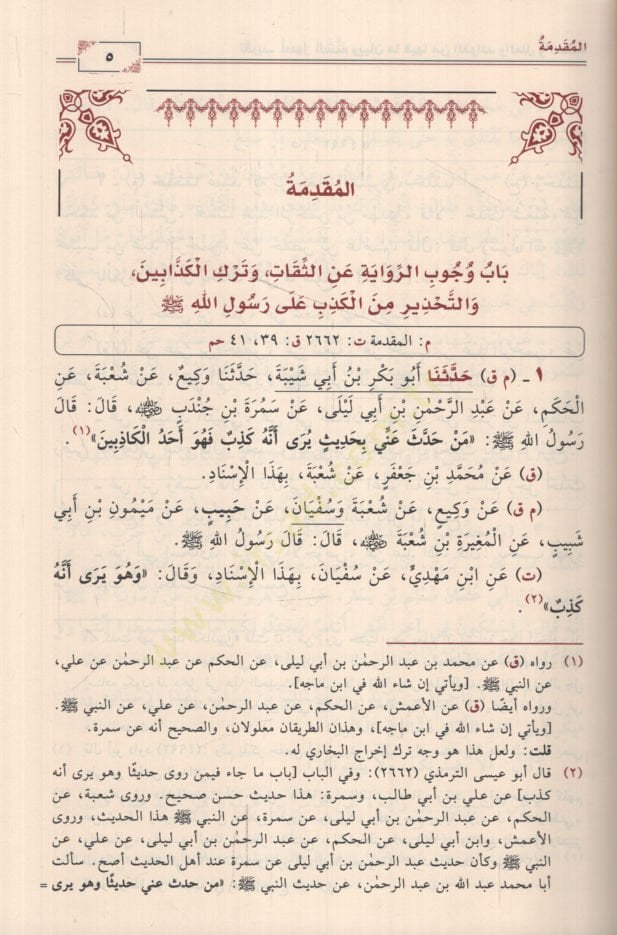 المُقَدِمَةُ
٥
المُقَدِمَةُ
بَابُ وُجُوبِ الرِّوَايَةِ عَنِ الثِّقَاتِ، وَتَرْكِ الْكَذَّابِينَ،
وَالتَّحْذِيرِ مِنَ الْكَذِبِ عَلَى رَسُولِ اللهِ ﷺ
م: المقدمة ت: ٢٦٦٢ ق: ٣٩، ٤١ حم
١ ـ (م ق) حَدَّثَنَا أَبُو بَكْرِ بْنُ أَبِي شَيْبَةَ، حَدَّثَنَا وَكِيعٌ، عَنْ شُعْبَةَ، عَنِ
الْحَكَمِ، عَنْ عَبْدِ الرَّحْمٰنِ بْنِ أَبِي لَيْلَى، عَنْ سَمُرَةَ بْنِ جُنْدَبٍ رضي الله عنه، قَالَ: قَالَ
رَسُولُ اللهِ ﷺ: «مَنْ حَدَّثَ عَنِّي بِحَدِيثٍ يُرَى أَنَّهُ كَذِبٌ فَهُوَ أَحَدُ الْكَاذِبِينَ»(١).
(ق) عَنْ مُحَمَّدِ بْنِ جَعْفَرٍ، عَنْ شُعْبَةَ، بِهَذَا الْإِسْنَادِ.
(م ق) عَنْ وَكِيعٍ، عَنْ شُعْبَةَ وَسُفْيَانَ، عَنْ حَبِيبٍ، عَنْ مَيْمُونِ بْنِ أَبِي
شَبِيبٍ، عَنِ الْمُغِيرَةِ بْنِ شُعْبَةَ رضي الله عنه، قَالَ: قَالَ رَسُولُ اللهِ ﷺ.
(ت) عَنِ ابْنِ مَهْدِيٍّ، عَنْ سُفْيَانَ، بِهَذَا الْإِسْنَادِ، وَقَالَ: «وَهُوَ يَرَى أَنَّهُ
كَذِبٌ»(٢).
(١) رواه (ق) عن محمد بن عبد الرحمٰن بن أبي ليلى، عن الحكم عن عبد الرحمٰن عن علي،
عن النبي ﷺ. [ويأتي إن شاء الله في ابن ماجه].
ورواه أيضًا (ق) عن الأعمش، عن الحكم، عن عبد الرحمٰن، عن علي، عن النبي ﷺ.
[ويأتي إن شاء الله في ابن ماجه]، وهذان الطريقان معلولان، والصحيح أنه عن سمرة.
قلت: ولعل هذا هو وجه ترك إخراج البخاري له.
(٢) قال أبو عيسى الترمذي (٢٦٦٢): وفي الباب [باب ما جاء فيمن روى حديثًا وهو يرى أنه
كذب] عن علي بن أبي طالب، وسمرة: هذا حديث حسن صحيح. وروى شعبة، عن
الحكم، عن عبد الرحمٰن بن أبي ليلى، عن سمرة، عن النبي ﷺ هذا الحديث، وروى
الأعمش، وابن أبي ليلى، عن الحكم، عن عبد الرحمٰن بن أبي ليلى، عن علي، عن
النبي ﷺ وكأن حديث عبد الرحمٰن بن أبي ليلى عن سمرة عند أهل الحديث أصح. سألت
أبا محمد عبد الله بن عبد الرحمٰن، عن حديث النبي ﷺ: «من حدث عني حديثًا وهو يرى =